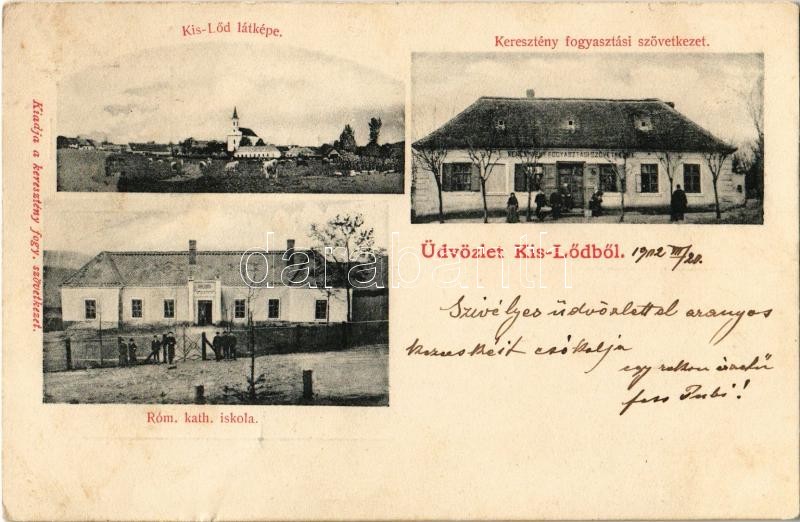 Kis-Lőd látképe.
Keresztény fogyasztási szövetkezet.
KERESZTÉNY FOGYASZTÁSI SZÖVETKEZET
Kiadja a keresztény fogy. szövetkezet.
darabanth
Üdvözlet Kis-Lődből. 1902 VII/20.
Szivélyes üdvözlettel aranyos
kezecskéit csókolja
egy rokon
Pubi!
Róm. kath. iskola.